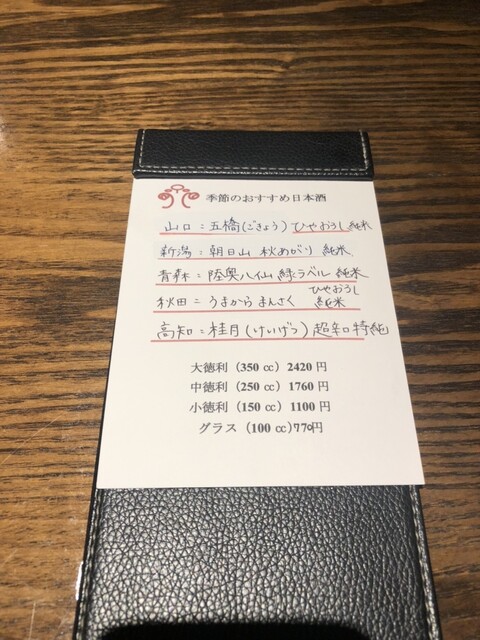 季節のおすすめ日本酒
山口：五橋(ごきょう) ひやおろし 純米
新潟：朝日山 秋あがり 純米
青森：陸奥八仙 緑ラベル 純米
秋田：うまからまんさく ひやおろし 純米
高知：桂月(けいげつ) 超辛口 特純
大徳利（350 cc）2420 円
中徳利（250 cc）1760 円
小徳利（150 cc）1100 円
グラス（100 cc）770円